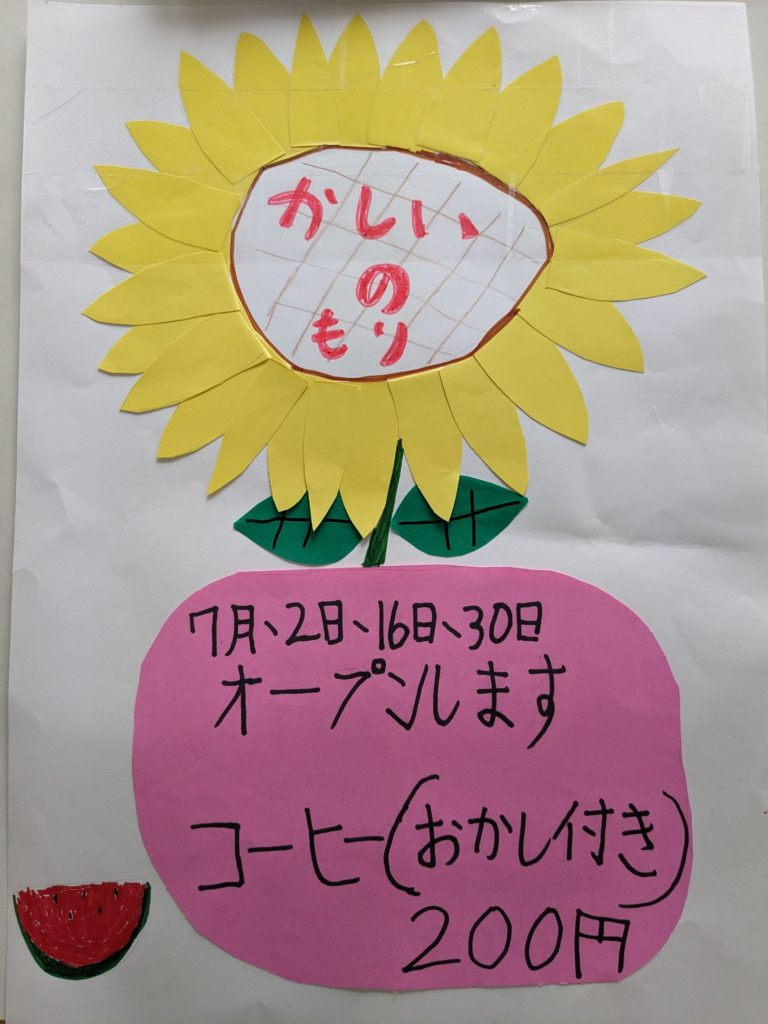 かしい
の
もり
7月、2日、16日、30日
オープンします
コーヒー(おかし付き)
200円